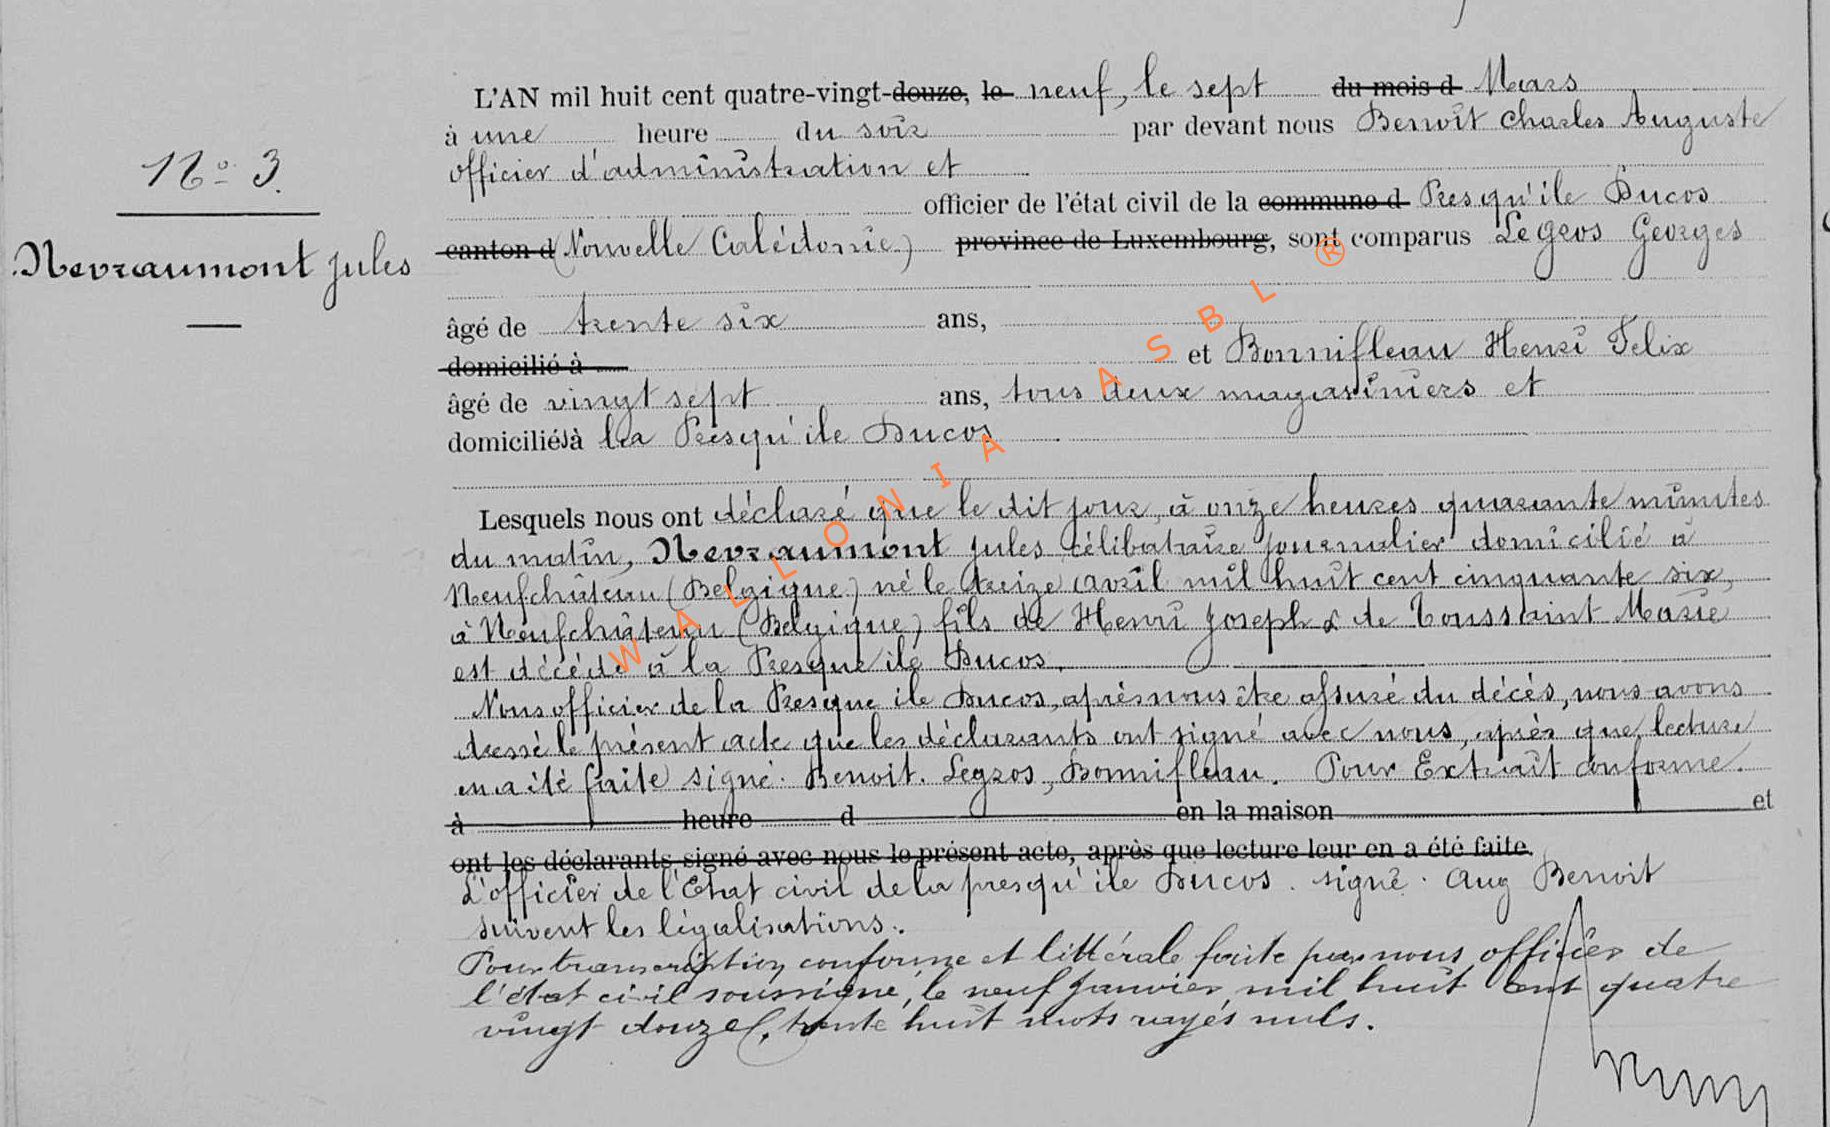 L'AN mil huit cent quatre-vingt-douze, le neuf, le sept du mois d Mars
à une heure du soir par devant nous Benoît Charles Auguste
officier d'administration et
N° 3.
officier de l'état civil de la commune d Presqu'ile Ducos
Nevraumont Jules
canton d (Nouvelle Calédonie) province de Luxembourg, sont comparus Legros Georges
âgé de trente six ans,
domicilié à et Bonnifleau Henri Felix
âgé de vingt sept ans, tous deux magasiniers et
domiciliés à la Presqu'ile Ducos
Lesquels nous ont déclaré que le dit jour, à onze heures quarante minutes
du matin, Nevraumont Jules célibataire journalier domicilié à
Neufchâteau (Belgique) né le treize avril mil huit cent cinquante six,
à Neufchâteau (Belgique) fils de Henri Joseph & de Toussaint Marie
est décédé à la Presque ile Ducos.
Nous officier de la Presque ile Ducos, après nous être assuré du décès, nous avons
dressé le présent acte que les déclarants ont signé avec nous, après que lecture
en a été faite signé. Benoit. Legros, Bonnifleau. Pour Extrait conforme.
à heure d en la maison et
ont les déclarants signé avec nous le présent acte, après que lecture leur en a été faite.
L'officier de l'Etat civil de la presqu'ile Ducos. signé. Aug Benoit
suivent les légalisations.
Pour transcription conforme et littérale faite par nous officier de
l'état civil soussigné, le neuf Janvier mil huit cent quatre
vingt douze, trente huit mots rayés nuls.
WALLONIA ASBL ®